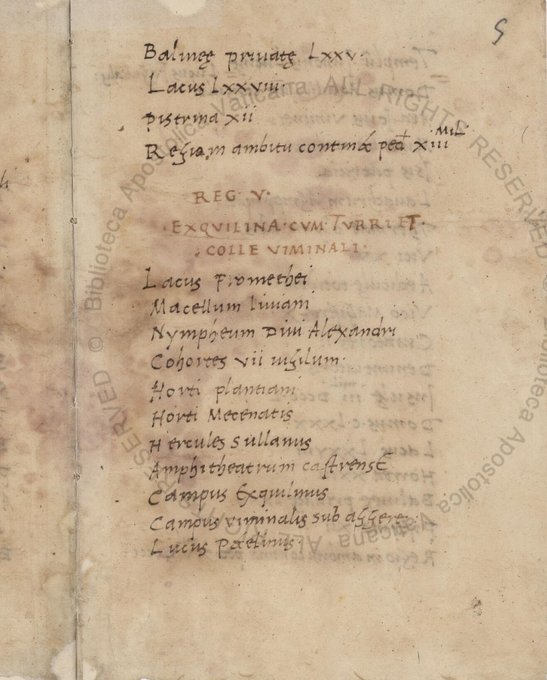 5
Balineę privatę LXXV.
Lacus LXXVIII
pistrina XII
Regio in ambitu continet ped XIII MIL
REG V.
EXQUILINA CUM TURRI ET
COLLE VIMINALI.
Lacus Promethei
Macellum liviani
Nympheum Divi Alexandri
Cohortes VII vigilum.
Horti plantiani
Horti Mecenatis
Hercules Sullanus
Amphitheatrum castrense
Campus Exquilinus
Campus viminalis sub aggere
Lucus Petelinus.
RESERVED © Biblioteca Apostolica Vaticana ALL RIGHTS RESERVED